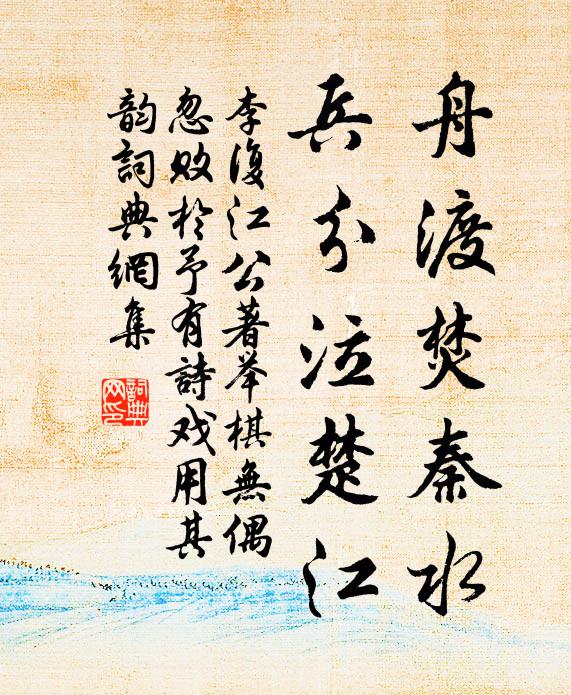 舟渡焚秦水
兵分泣楚江
李復江公著举棋無偶
忽败於予有詩戏用其
韵詞典網集
詞典网印